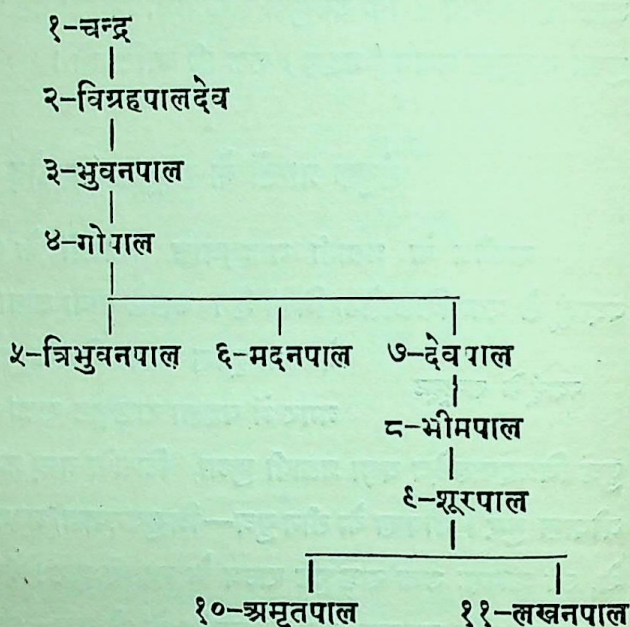 १-चन्द्र
२-विग्रहपालदेव
३-भुवनपाल
४-गोपाल
५-त्रिभुवनपाल ६-मदनपाल ७-देवपाल
८-भीमपाल
९-शूरपाल
१०-अमृतपाल ११-लखनपाल